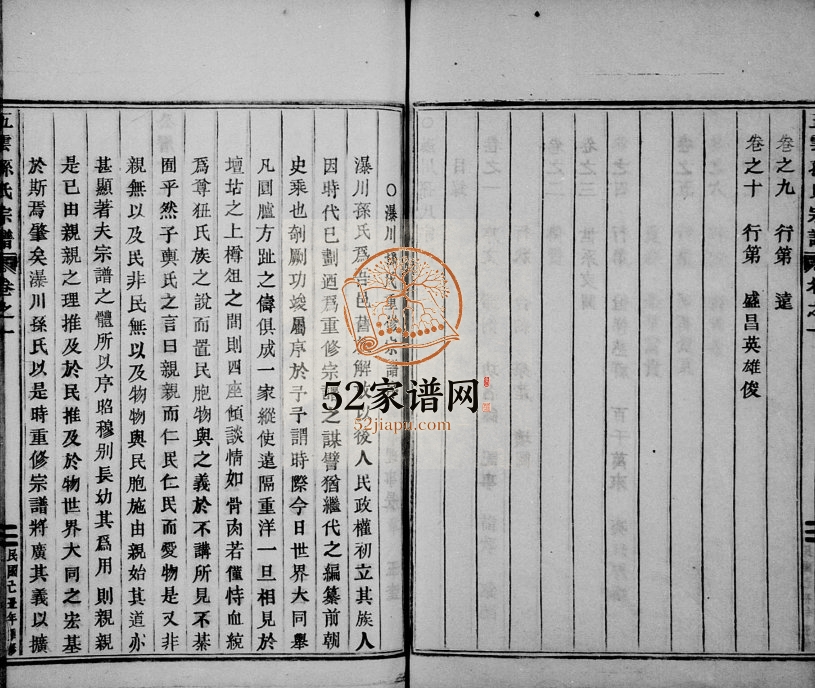 卷之九 行第 遠
卷之十 行第 盛昌英雄俊
五雲孫氏宗譜 卷之一
民國己丑年重修
○瀑川孫氏重修宗譜
瀑川孫氏爲吾邑舊 解放以後人民政權初立其族人
因時代已劃迺爲重修宗譜之謀譬猶繼代之編纂前朝
史乘也剞劂功竣屬序於予予謂時際今日世界大同舉
凡圓臚方趾之儔俱成一家縱使遠隔重洋一旦相見於
壇坫之上樽俎之間則四座傾談情如骨肉若僅恃血統
爲尊狃氏族之說而置民胞物與之義於不講所見不綦
囿乎然子輿氏之言曰親親而仁民仁民而愛物是又非
親無以及民非民無以及物物與民胞施由親始其道亦
甚顯著夫宗譜之體所以序昭穆别長幼其爲用則親親
是已由親親之理推及於民推及於物世界大同之宏基
於斯焉肇矣瀑川孫氏以是時重修宗譜將廣其義以擴
五雲孫氏宗譜 卷之一
民國己丑年重修
52家谱网
52jiapu.com